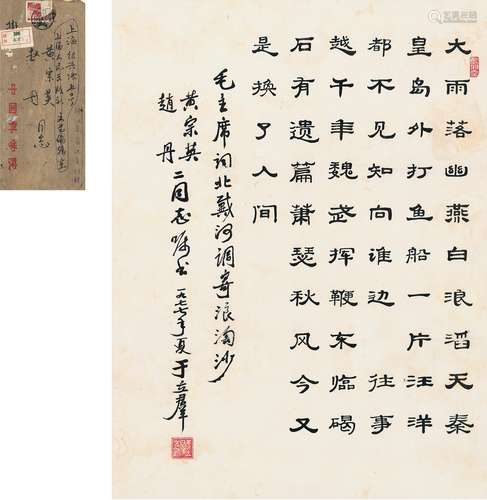 大雨落幽燕白浪滔天秦
皇岛外打鱼船一片汪洋
都不见知向谁边 往事
越千年魏武挥鞭东临碣
石有遗篇萧瑟秋风今又
是换了人间
毛主席词北戴河调寄浪淘沙
黄宗英
趙丹 二同志嘱书 一九七七年夏 于立群
上海
黄宗英
赵丹 同志